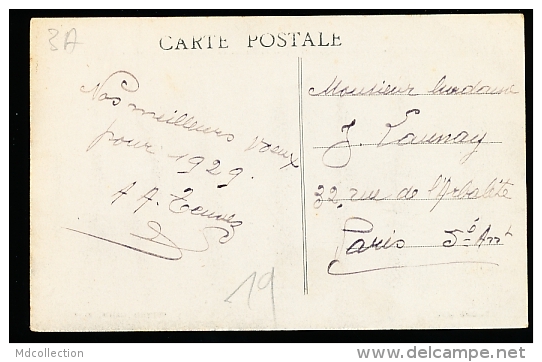 3A
CARTE POSTALE
Nos meilleurs voeux
pour 1929.
A A.
Monsieur Madame
J. Launay
32, rue de l'Arbalète
Paris 5è Arrt
19
Mdcollection
http://www.delcampe.net